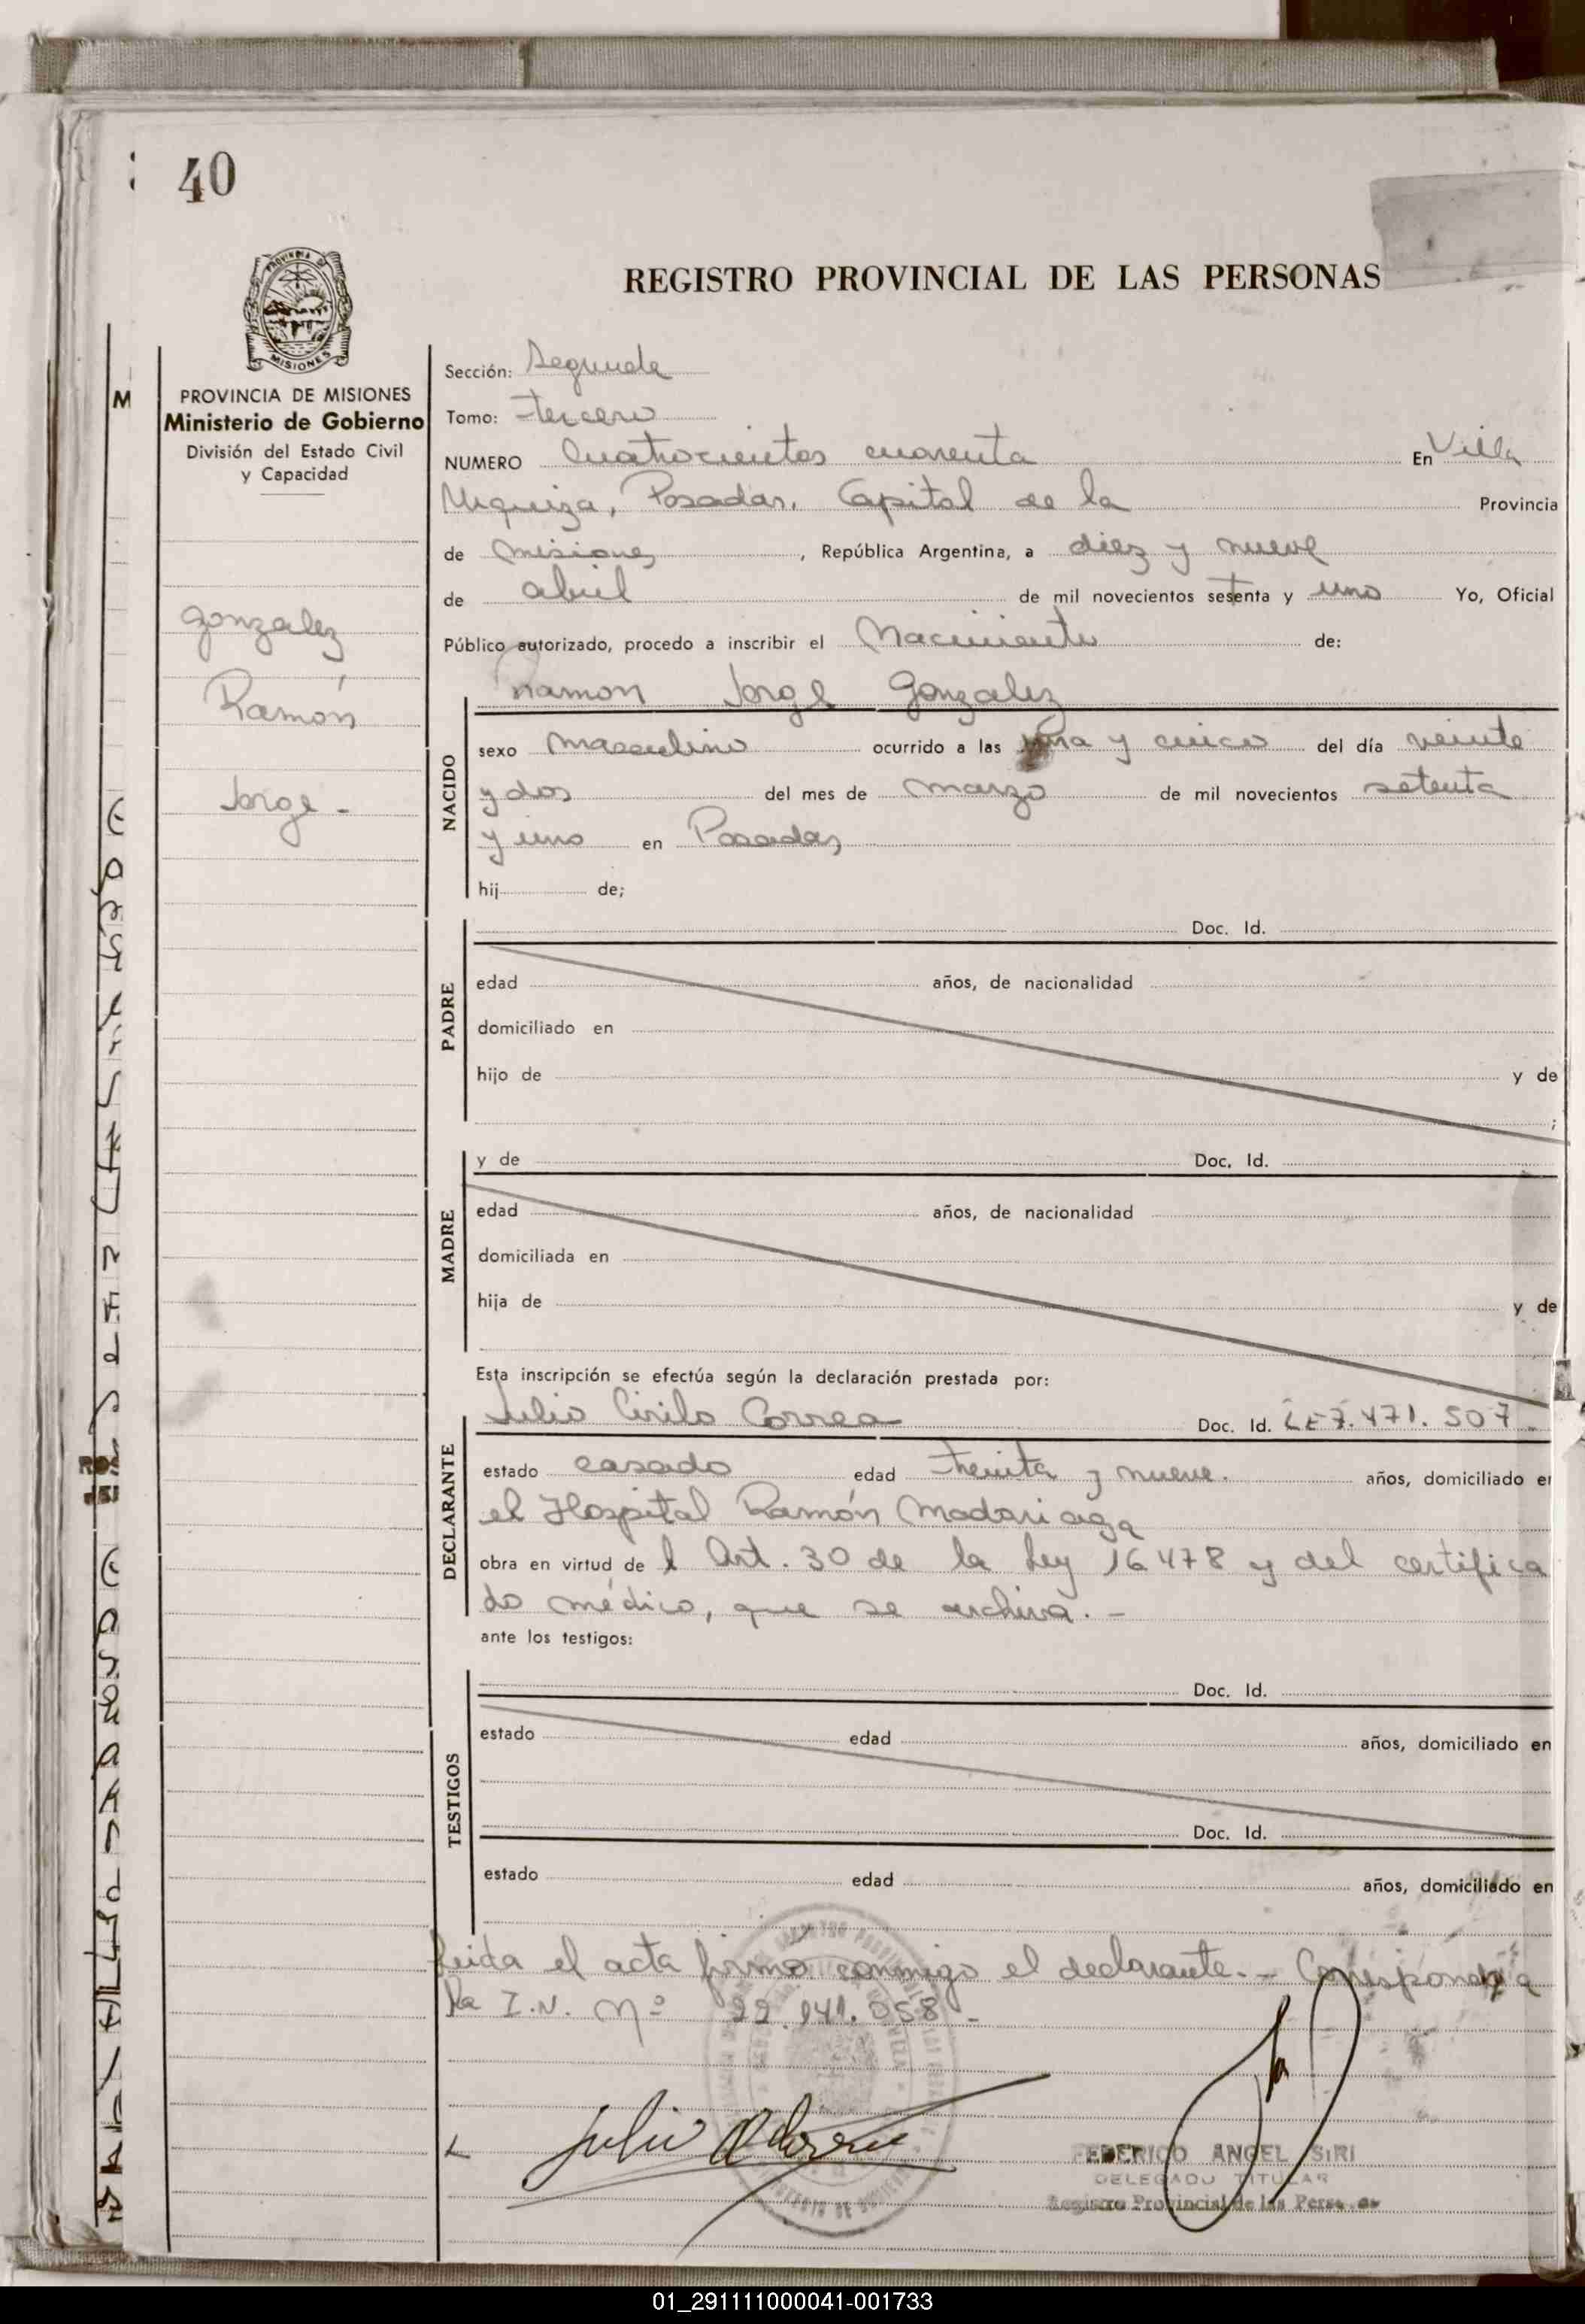 40
REGISTRO PROVINCIAL DE LAS PERSONAS
PROVINCIA DE
MISIONES
PROVINCIA DE MISIONES
Ministerio de Gobierno
División del Estado Civil
y Capacidad
Gonzalez
Ramón
Jorge -
Sección: Segunda
Tomo: tercero
NUMERO Cuatrocientos cuarenta En Villa
Urquiza, Posadas, Capital de la Provincia
de Misiones, República Argentina, a diez y nueve
de abril de mil novecientos setenta y uno Yo, Oficial
Público autorizado, procedo a inscribir el Nacimiento de:
Ramon Jorge Gonzalez
NACIDO
sexo Masculino ocurrido a las una y cinco del día veinte
y dos del mes de marzo de mil novecientos setenta
y uno en Posadas
hij de;
PADRE
Doc. Id.
edad años, de nacionalidad
domiciliado en
hijo de y de
;
MADRE
y de Doc. Id.
edad años, de nacionalidad
domiciliada en
hija de y de
Esta inscripción se efectúa según la declaración prestada por:
DECLARANTE
Julio Cirilo Correa Doc. Id. LE 7.471.507
estado casado edad treinta y nueve. años, domiciliado en
el Hospital Ramón Madariaga
obra en virtud de l Art. 30 de la Ley 16478 y del certifica
do médico, que se archiva. -
ante los testigos:
TESTIGOS
Doc. Id.
estado edad años, domiciliado en
Doc. Id.
estado edad años, domiciliado en
Leida el acta firmó conmigo el declarante. - Corresponde a
la I.N. Nº 22.141.058 -
FEDERICO ANGEL SIRI
DELEGADO TITULAR
Registro Provincial de las Personas
01_291111000041-001733